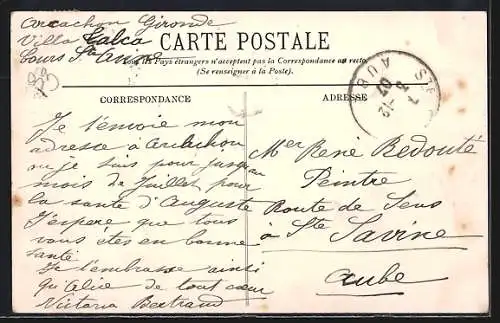 Arcachon Gironde
Villa Calça
Cours Ste Anne
CARTE POSTALE
Tous les Pays étrangers n'acceptent pas la Correspondance au recto
(Se renseigner à la Poste).
CORRESPONDANCE
Je t'envoie mon
adresse à Arcachon
ou je suis pour jusqu'au
mois de Juillet pour
la santé d'Auguste
J'espère que tous
vous êtes en bonne
santé
Je t'embrasse ainsi
qu'Alice de tout cœur
Victoria Bertrand
ADRESSE
Mer René Redouté
Peintre
Route de Sens
à Ste Savine
Aube
AUBE